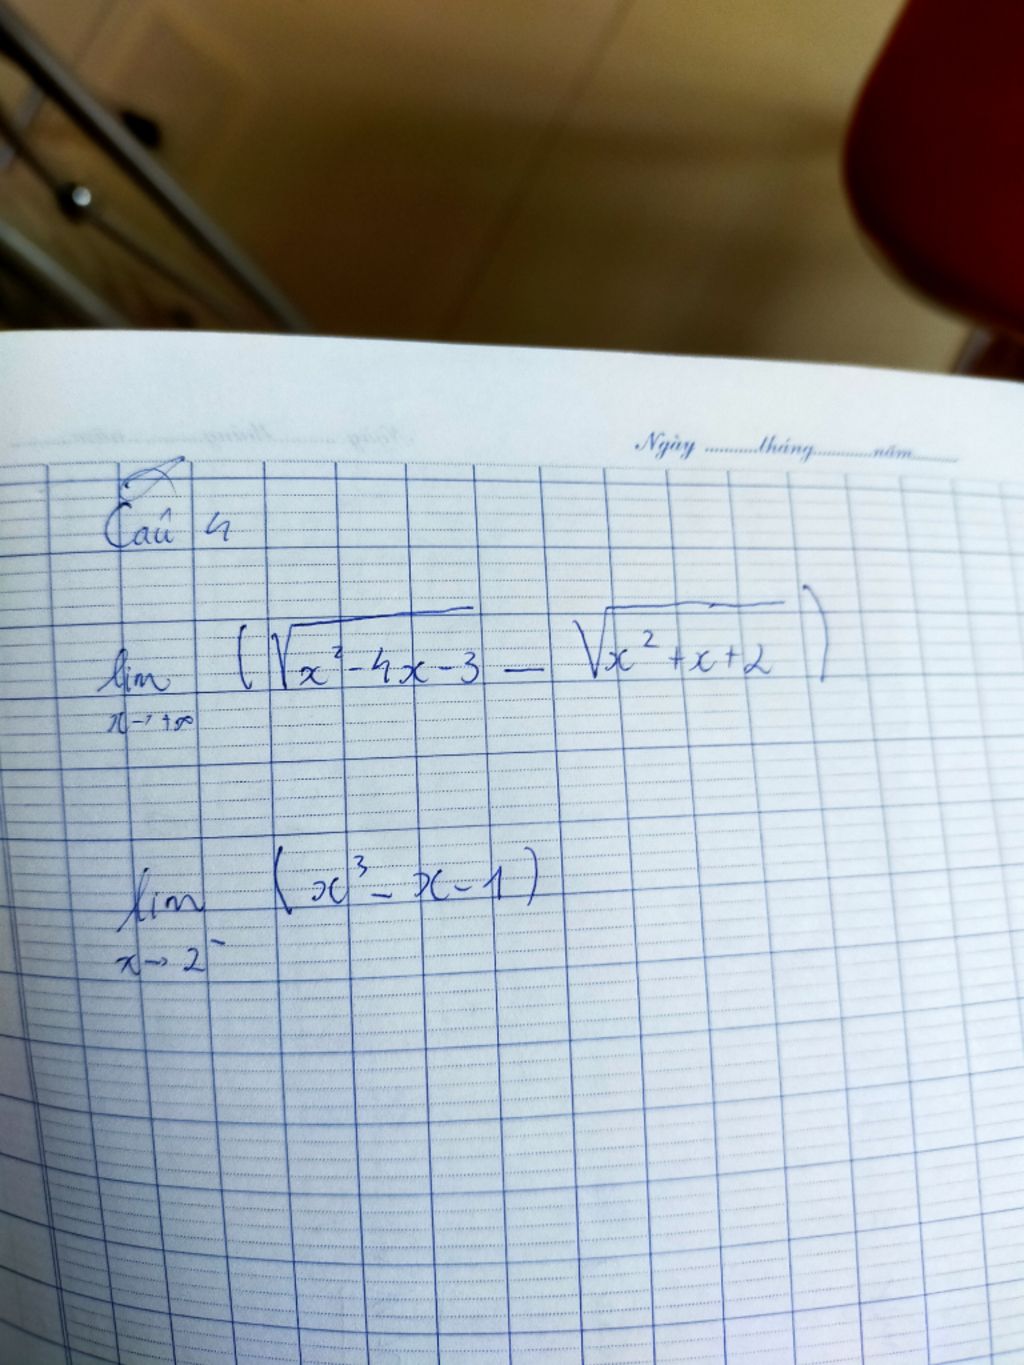 Ngày ............tháng............năm............
Câu 4
lim (√(x² - 4x - 3) - √(x² + x + 2))
x → +∞
lim (x³ - x - 1)
x → 2⁻